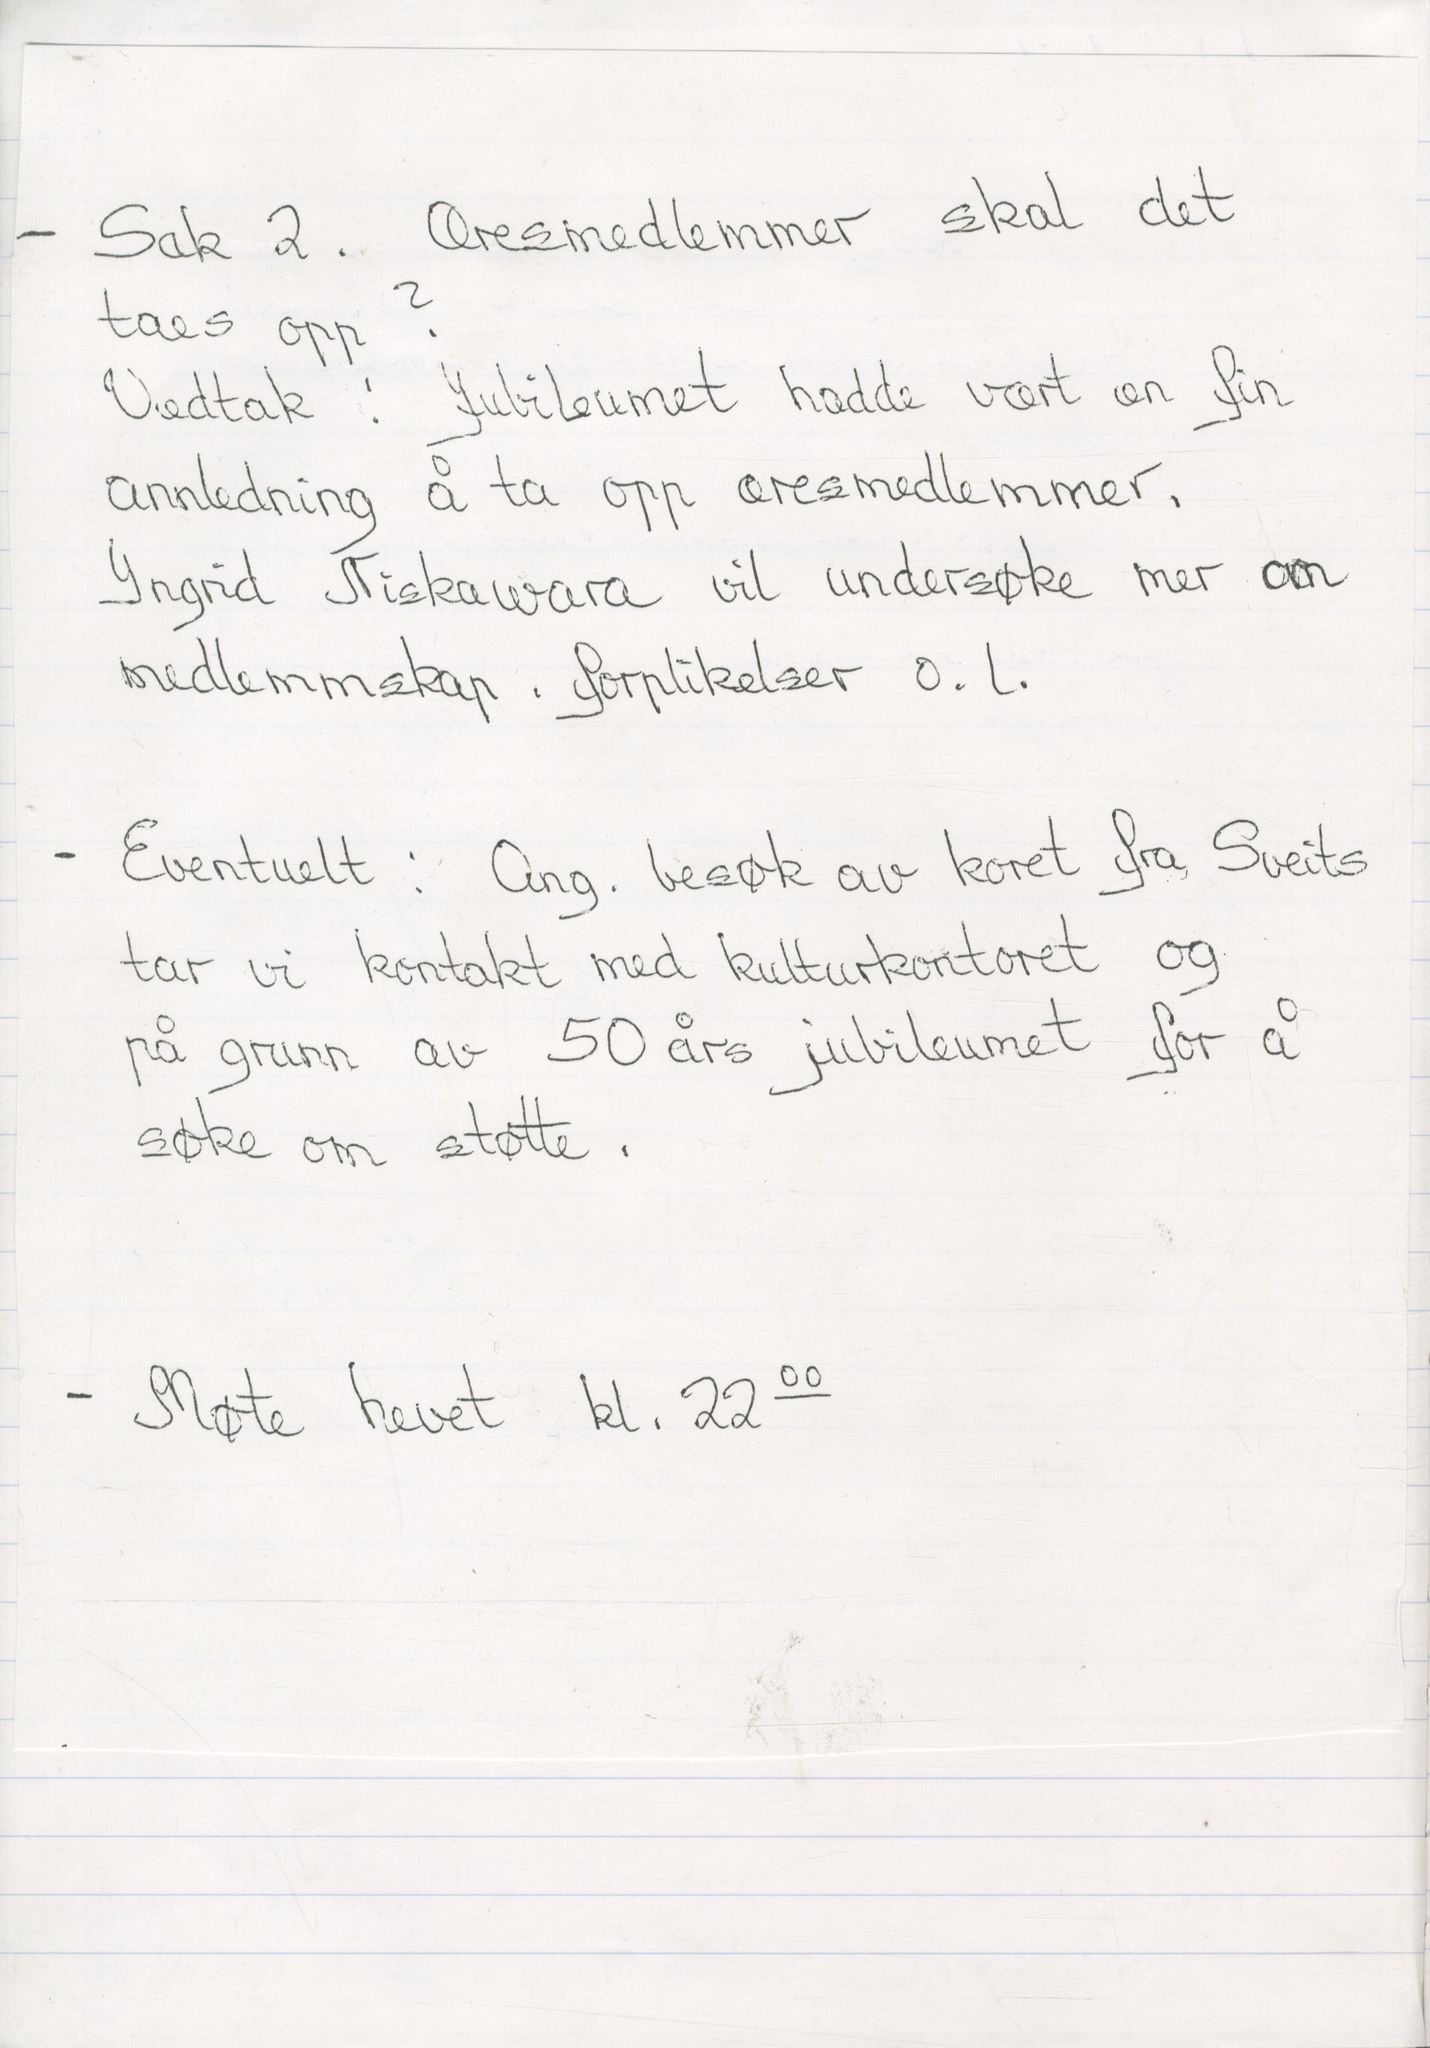 - Sak 2. Æresmedlemmer skal det
taes opp?
Vedtak: Jubileumet hadde vært en fin
annledning å ta opp æresmedlemmer.
Yngrid Niskawara vil undersøke mer om
medlemmskap. forplikelser o.l.
- Eventuelt: Ang. besøk av koret fra Sveits
tar vi kontakt med kulturkontoret og
på grunn av 50 års jubileumet for å
søke om støtte.
- Møte hevet kl. 22 00